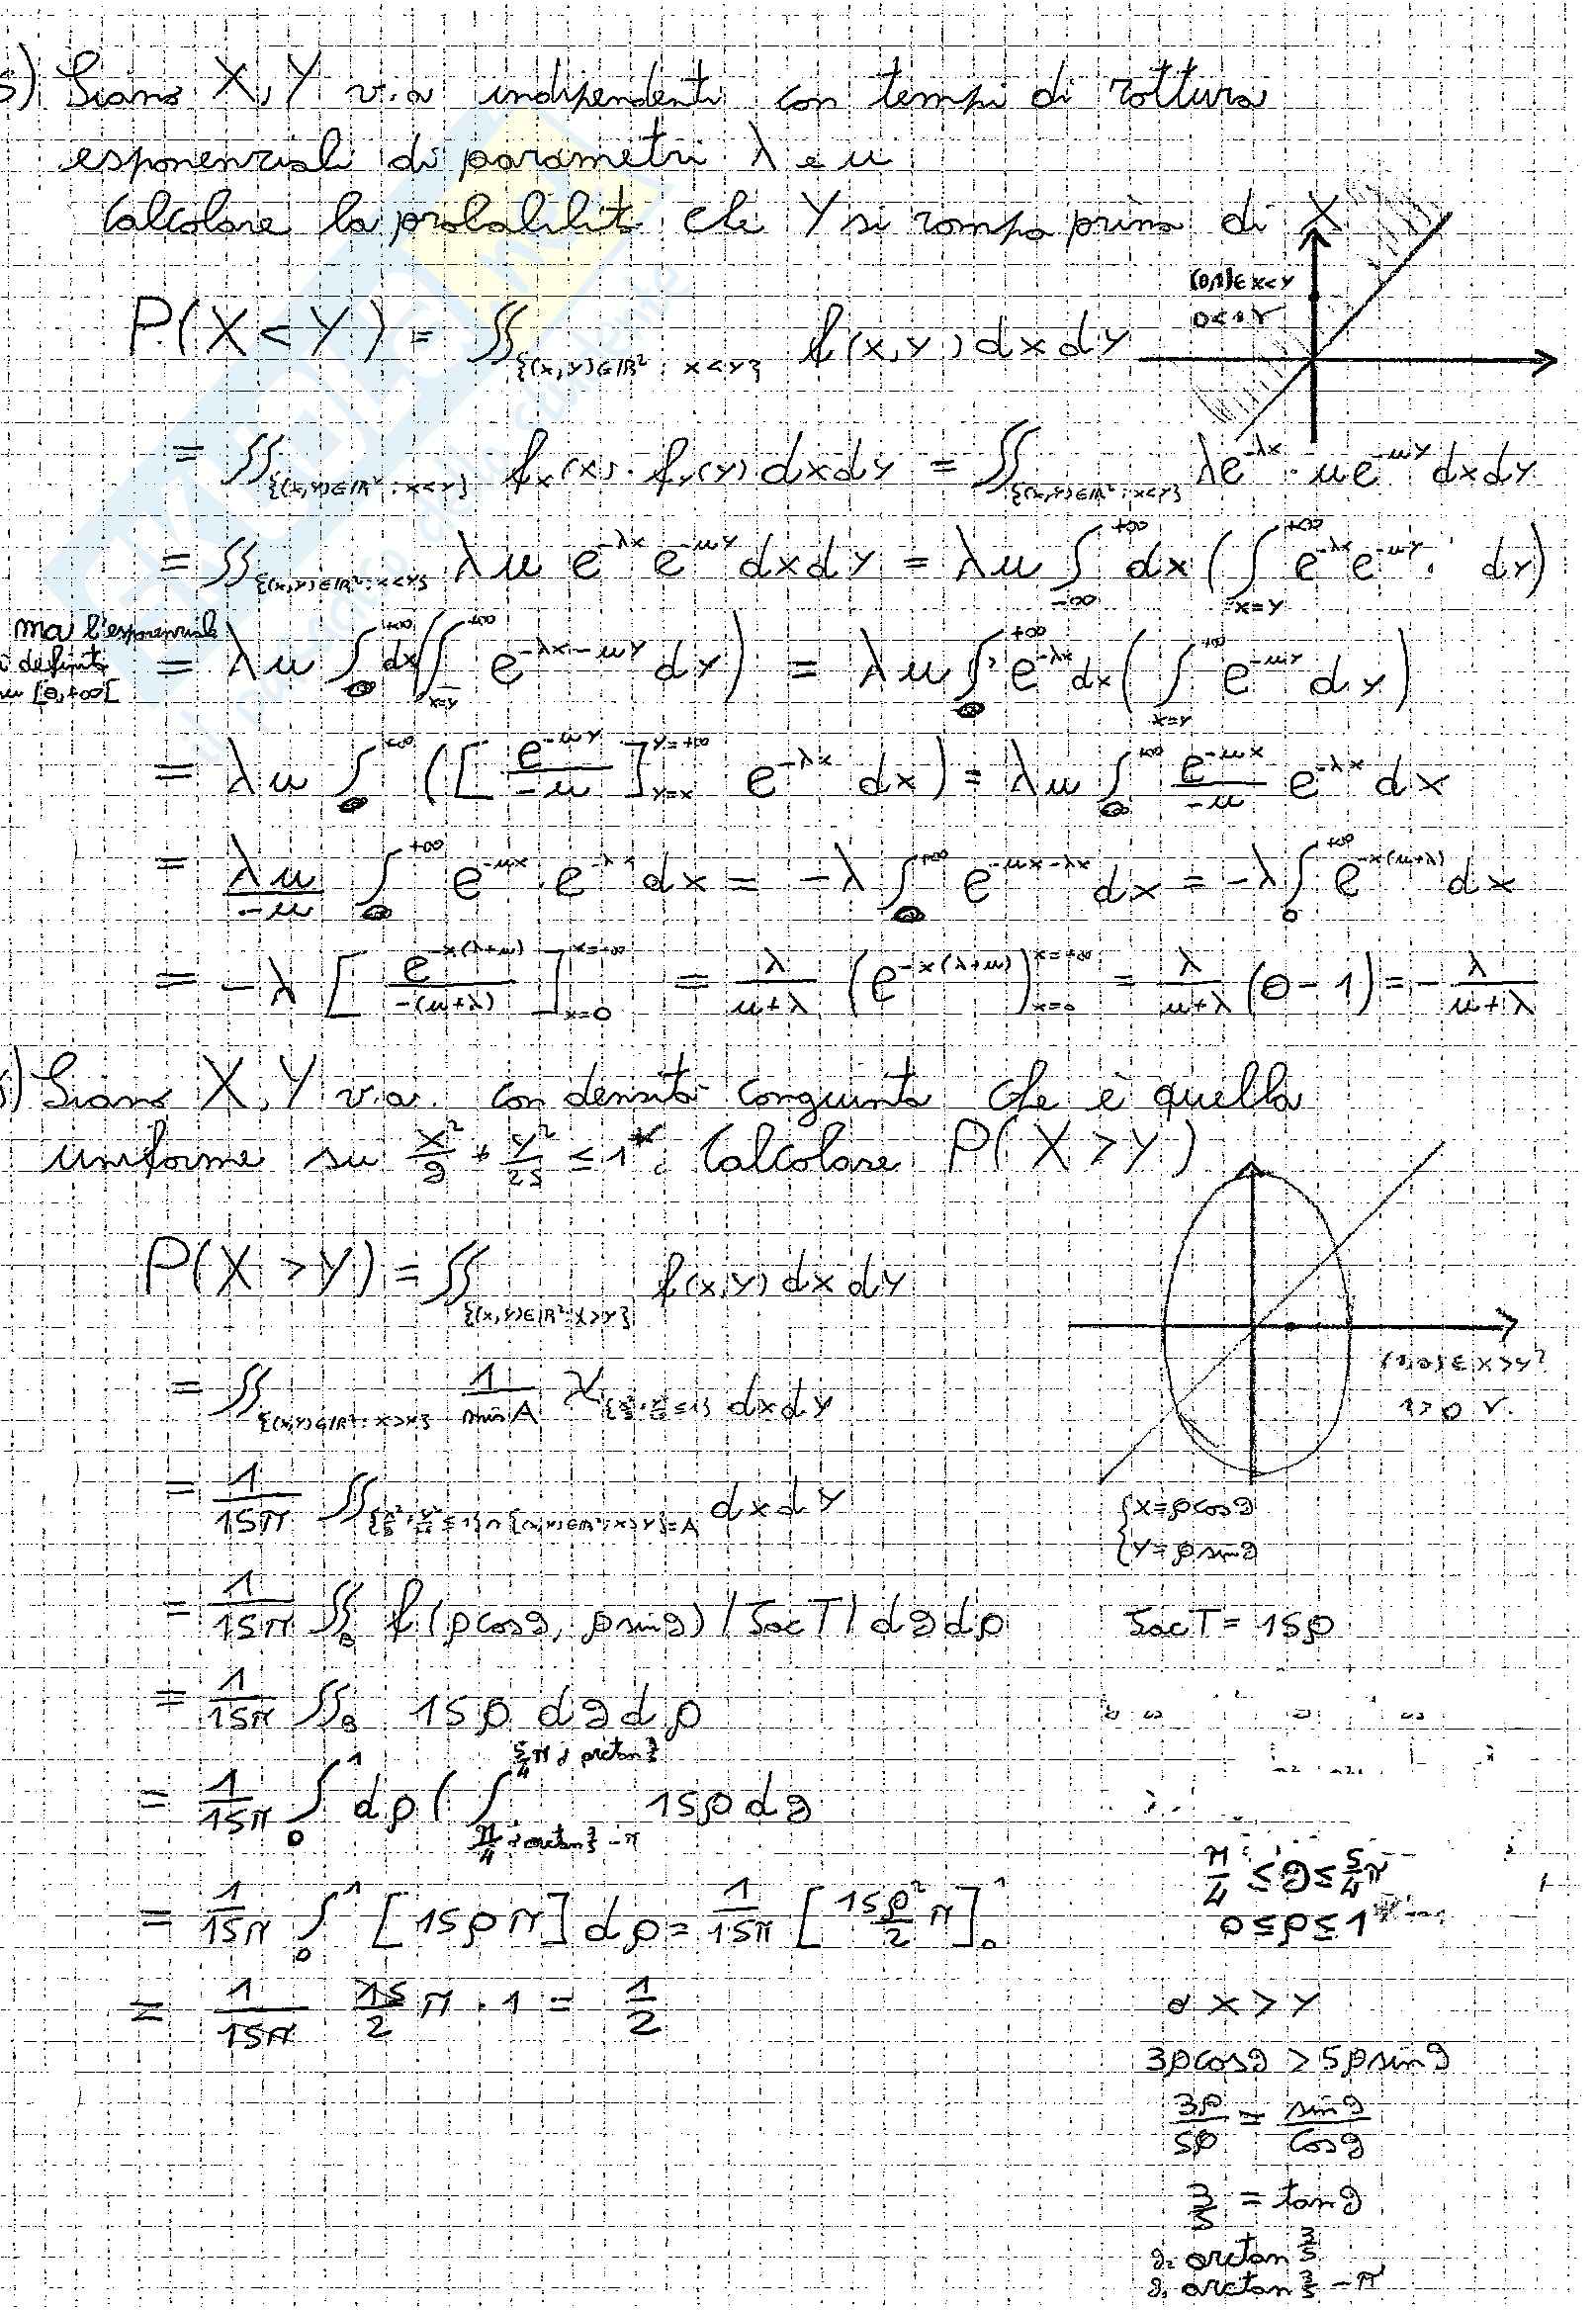 5) Siano X, Y v.a indipendenti con tempi di rottura
esponenziali di parametri λ e μ
Calcolare la probabilità che Y si rompa prima di X
(0,1)∈ x<y
0<1 V
P(X<Y) = ∬{(x,y)∈ℝ² : x<y} f(x,y) dxdy
= ∬{(x,y)∈ℝ² : x<y} fx(x)·fy(y) dxdy = ∬{(x,y)∈ℝ² : x<y} λe^-λx · μe^-μy dxdy
= ∬{(x,y)∈ℝ² : x<y} λμ e^-λx e^-μy dxdy = λμ ∫_-∞^+∞ dx (∫_x=y^+∞ e^-λx e^-μy · dy)
ma l'esponenziale
è definita
su [0,+∞[
= λμ ∫_0^+∞ dx (∫_x=y^+∞ e^-λx-μy dy) = λμ ∫_0^+∞ e^-λx dx (∫_x=y^+∞ e^-μy dy)
= λμ ∫_0^+∞ ([e^-μy/-μ]_y=x^y=+∞ e^-λx dx) = λμ ∫_0^+∞ e^-μx/-μ e^-λx dx
= λμ/-μ ∫_0^+∞ e^-μx · e^-λx dx = -λ ∫_0^+∞ e^-μx-λx dx = -λ ∫_0^+∞ e^-x(μ+λ) dx
= -λ [e^-x(λ+μ)/-(μ+λ)]_x=0^x=+∞ = λ/μ+λ (e^-x(λ+μ))_x=0^x=+∞ = λ/μ+λ (0-1) = - λ/μ+λ
Siano X, Y v.a. con densità congiunta che è quella
uniforme su x²/9 + y²/25 ≤ 1*. Calcolare P(X>Y)
P(X>Y) = ∬{(x,y)∈ℝ² : x>y} f(x,y) dxdy
(1,0)∈ x>y?
1>0 V.
= ∬{(x,y)∈ℝ² : x>y} 1/mis A χ{x²/9+y²/25≤1} dxdy
= 1/15π ∬{x²/9+y²/25≤1}∩{(x,y)∈ℝ²: x>y}=A dxdy
{x=ρcosϑ
{y=ρsinϑ
= 1/15π ∬_B f(ρcosϑ, ρsinϑ) |JacT| dϑdρ
JacT = 15ρ
= 1/15π ∬_B 15ρ dϑdρ
= 1/15π ∫_0^1 dρ ( ∫_π/4 arctan 3/5 -π^5/4π arctan 3/5 15ρdϑ
π/4 ≤ϑ≤ 5/4π
0≤ρ≤1
= 1/15π ∫_0^1 [15ρπ] dρ = 1/15π [15ρ²/2 π]_0^1
= 1/15π 15/2 π · 1 = 1/2
x>y
3ρcosϑ > 5ρsinϑ
3ρ/5ρ = sinϑ/cosϑ
3/5 = tanϑ
ϑ₂ arctan 3/5
ϑ₁ arctan 3/5 -π